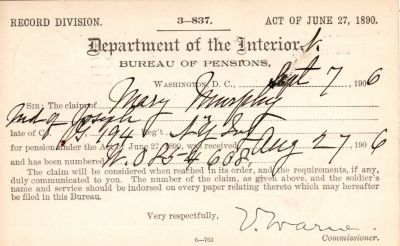 RECORD DIVISION. 3—837. ACT OF JUNE 27, 1890.
Department of the Interior,
BUREAU OF PENSIONS,
WASHINGTON, D. C., Sept 7, 1906
SIR: The claim of Mary Murphy
Wid of Joseph
late of Co. G. 194 Reg't N.Y. Inf
for pension under the Act of June 27, 1890, was received Aug 27, 1906
and has been numbered W.O. 854 608.
The claim will be considered when reached in its order, and the requirements, if any,
duly communicated to you. The number of the claim, as given above, and the soldier's
name and service should be indorsed on every paper relating thereto which may hereafter
be filed in this Bureau.
Very respectfully,
V. Warner
Commissioner.
6—763